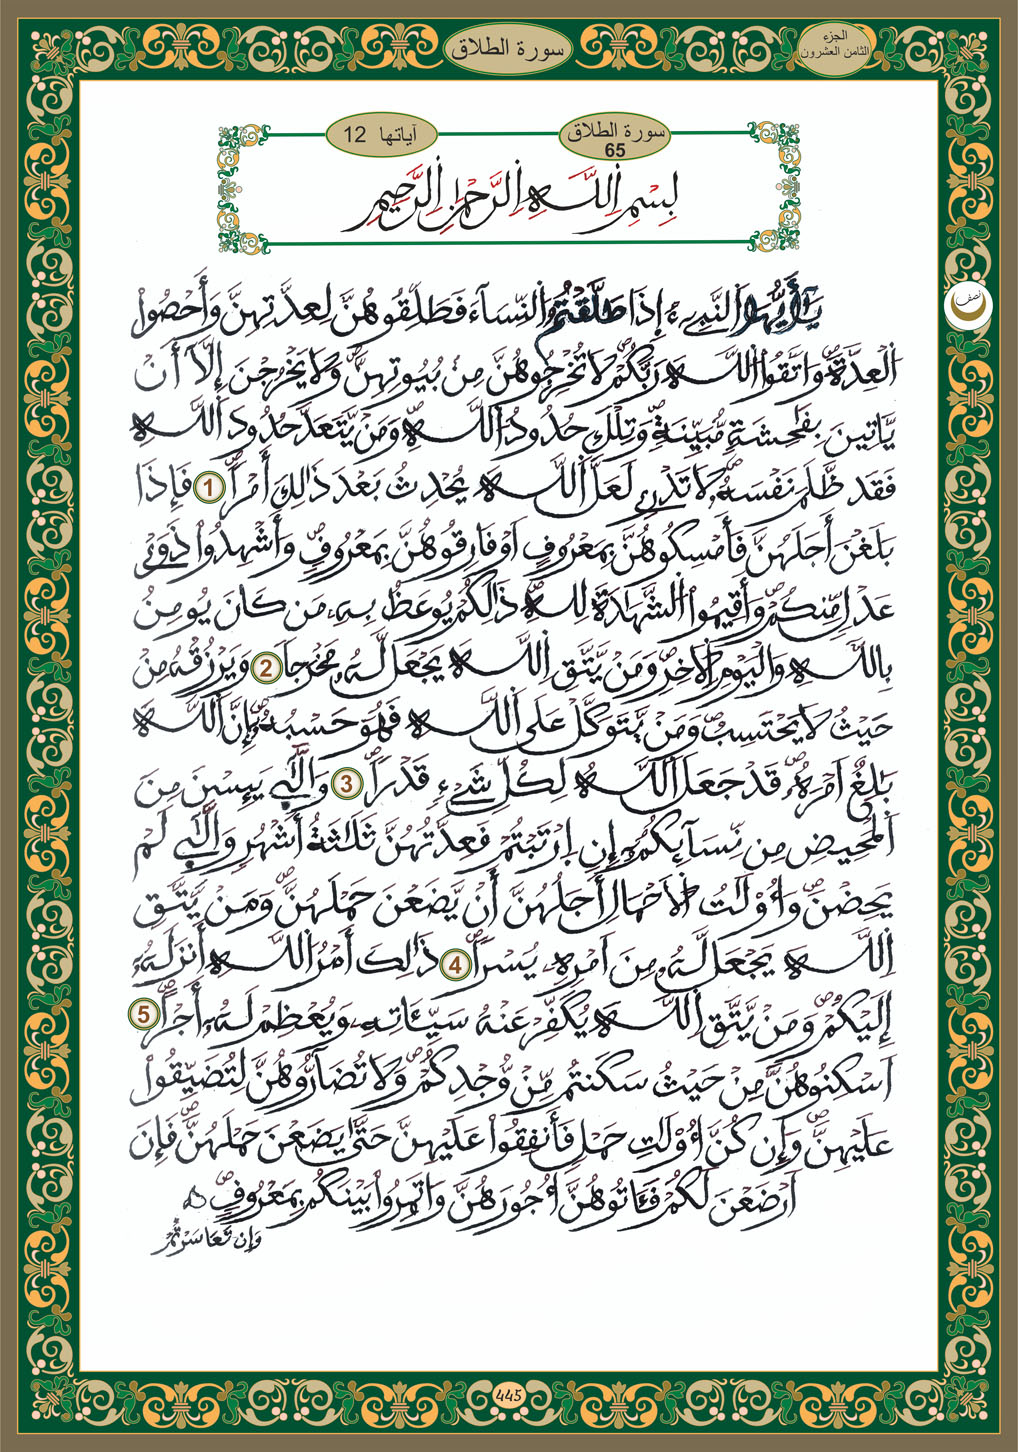 سورة الطلاق
الجزء
الثامن العشرون
آياتها 12
سورة الطلاق
65
بِسْمِ اِ۬للَّهِ اِ۬لرَّحْمَٰنِ اِ۬لرَّحِيمِ
نصف
يَٰٓأَيُّهَا اَ۬لنَّبِيٓءُ إِذَا طَلَّقْتُمُ اُ۬لنِّسَآءَ فَطَلِّقُوهُنَّ لِعِدَّتِهِنَّ وَأَحْصُواْ
اُ۬لْعِدَّةَۖ وَاتَّقُواْ اُ۬للَّهَ رَبَّكُمْ لَا تُخْرِجُوهُنَّ مِنۢ بُيُوتِهِنَّ وَلَا يَخْرُجْنَ إِلَّآ أَنْ
يَّاتِينَ بِفَٰحِشَةٖ مُّبَيِّنَةٖۖ وَتِلْكَ حُدُودُ اُ۬للَّهِۖ وَمَنْ يَّتَعَدَّ حُدُودَ اَ۬للَّهِ
فَقَد ظَّلَمَ نَفْسَهُۥۖ لَا تَدْرِے لَعَلَّ اَ۬للَّهَ يُحْدِثُ بَعْدَ ذَٰلِكَ أَمْراٗۖ 1 فَإِذَا
بَلَغْنَ أَجَلَهُنَّ فَأَمْسِكُوهُنَّ بِمَعْرُوفٍ اَوْ فَارِقُوهُنَّ بِمَعْرُوفٖۖ وَأَشْهِدُواْ ذَوَےْ
عَدْلٖ مِّنكُمْ وَأَقِيمُواْ اُ۬لشَّهَٰدَةَ لِلهِۖ ذَٰلِكُمْ يُوعَظُ بِهِۦ مَن كَانَ يُومِنُ
بِاللَّهِ وَالْيَوْمِ اِ۬لَاخِرِۖ وَمَنْ يَّتَّقِ اِ۬للَّهَ يَجْعَل لَّهُۥ مَخْرَجاٗ 2 وَيَرْزُقْهُ مِنْ
حَيْثُ لَا يَحْتَسِبُۖ وَمَنْ يَّتَوَكَّلْ عَلَى اَ۬للَّهِ فَهُوَ حَسْبُهُۥٓۖ إِنَّ اَ۬للَّهَ
بَٰلِغٌ اَمْرَهُۥۖ قَدْ جَعَلَ اَ۬للَّهُ لِكُلِّ شَےْءٖ قَدْراٗۖ 3 وَالَّٰٓےِٕ يَئِسْنَ مِنَ
اَ۬لْمَحِيضِ مِن نِّسَآئِكُمُۥٓ إِنِ اِ۪رْتَبْتُمْ فَعِدَّتُهُنَّ ثَلَٰثَةُ أَشْهُرٖ وَالَّٰٓےِٕ لَمْ
يَحِضْنَۖ وَأُوْلَٰتُ اُ۬لَاحْمَالِ أَجَلُهُنَّ أَنْ يَّضَعْنَ حَمْلَهُنَّۖ وَمَنْ يَّتَّقِ
اِ۬للَّهَ يَجْعَل لَّهُۥ مِنَ اَمْرِهِۦ يُسْراٗۖ 4 ذَٰلِكَ أَمْرُ اُ۬للَّهِ أَنزَلَهُۥٓ
إِلَيْكُمْۖ وَمَنْ يَّتَّقِ اِ۬للَّهَ يُكَفِّرْ عَنْهُ سَيِّـَٔاتِهِۦ وَيُعْظِمْ لَهُۥٓ أَجْراًۖ 5
اَسْكِنُوهُنَّ مِنْ حَيْثُ سَكَنتُم مِّنْ وُّجْدِكُمْۖ وَلَا تُضَآرُّوهُنَّ لِتُضَيِّقُواْ
عَلَيْهِنَّۖ وَإِن كُنَّ أُوْلَٰتِ حَمْلٖ فَأَنفِقُواْ عَلَيْهِنَّ حَتَّىٰ يَضَعْنَ حَمْلَهُنَّۖ فَإِنَ
اَرْضَعْنَ لَكُمْ فَـَٔاتُوهُنَّ أُجُورَهُنَّ وَاتَمِرُواْ بَيْنَكُم بِمَعْرُوفٖۖ
وَإِن تَعَاسَرْتُمْ
445